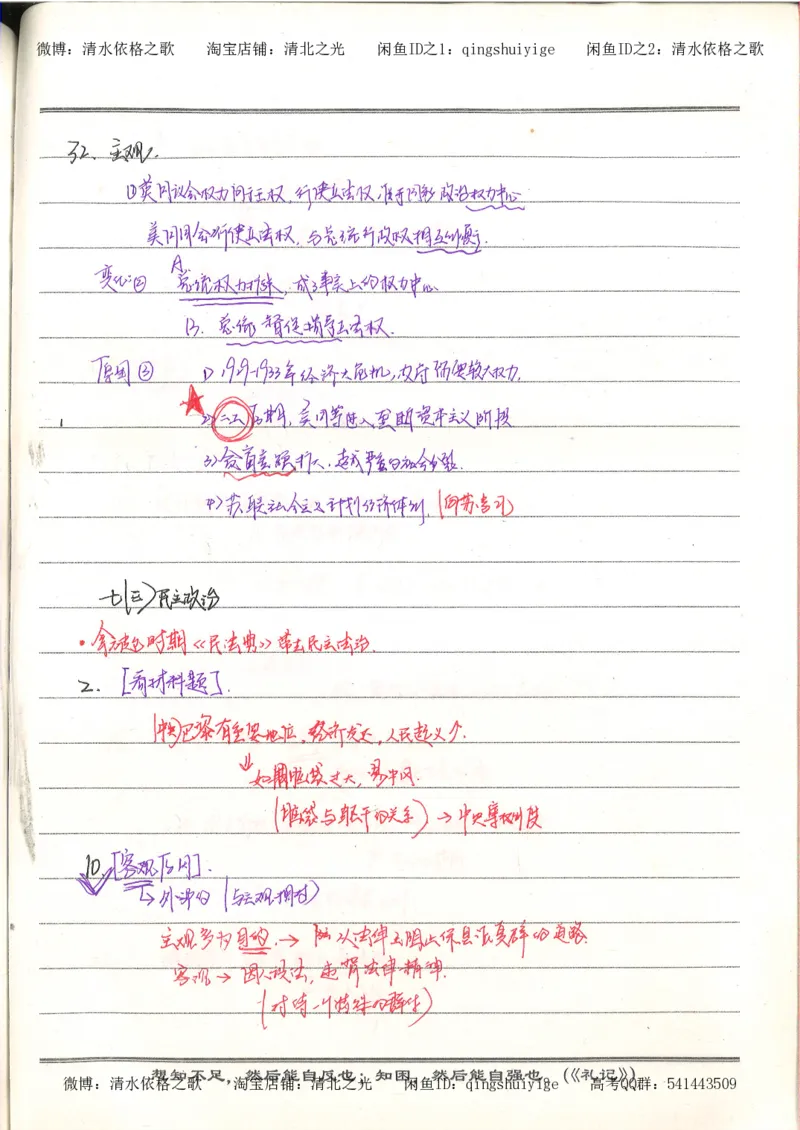 微博：清水依格之歌 淘宝店铺：清北之光 闲鱼ID之1：qingshuiyige 闲鱼ID之2：清水依格之歌
32. 主观.
①英国议会权力高于王权, 行使立法权, 政治权力中心
美国国会行使立法权, 与总统行政权相互制衡.
变化② A 总统权力, 成了事实上的权力中心
B. 总统督促指导立法权.
原因③ 1) 1929-1933年经济大危机, 政府需要较大权力.
2) 二战后期, 美国等进入垄断资本主义阶段
3) 贫富差距扩大, 严重的社会分裂.
4) 苏联社会主义计划经济体制. (向苏学习)
七(三) 民主政治
·拿破仑时期《民法典》民主法治.
2. [看材料题].
有重要地位, 经济发达, 人民起义少.
↓如脑袋过大, 易中风.
(脑袋与躯干的关系) → 中央集权制度
10. [客观后因].
↳ (与主观相对)
主观多为目的. → 从法律上阻止的道路.
客观 → 违背法律精神.
(对待一个特殊的群体)
想知不足，然后能自反也；知困，然后能自强也。(《礼记》)
微博：清水依格之歌 淘宝店铺：清北之光 闲鱼ID之1：qingshuiyige 高考QQ群：541443509